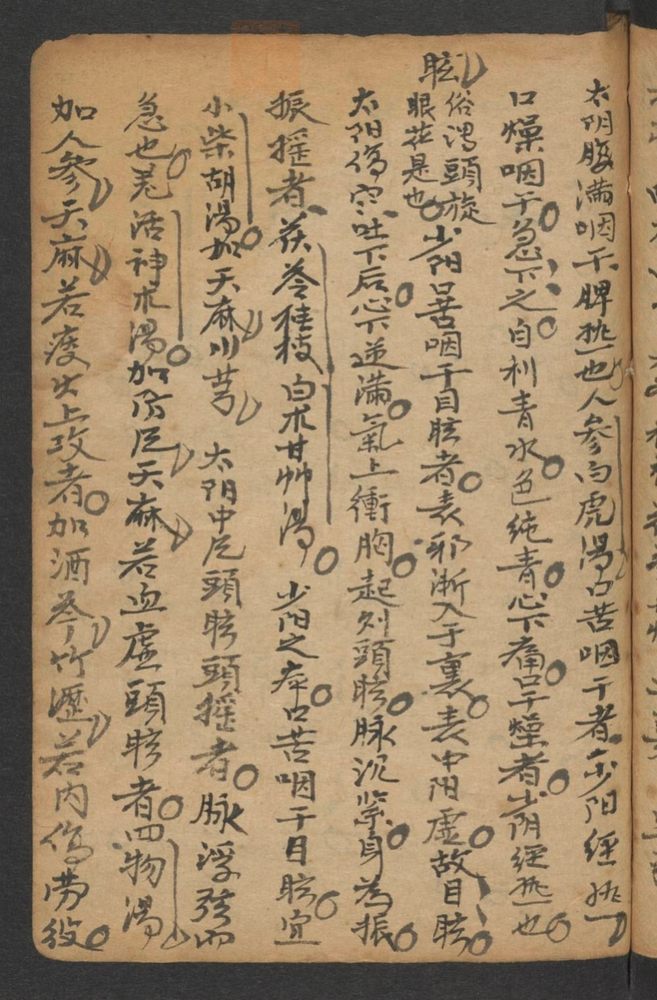 太阴腹满咽干脾热也人参白虎湯口苦咽干者少阳经热
口燥咽干急下之自利青水色纯青心下痛口干燥者少阴经热也
眩 俗谓頭旋眼花是也 少阳口苦咽干目眩者表邪漸入于裏表中阳虚故目眩
太阳伤寒吐下后心下逆满氣上衝胸起则頭眩脉沉紧身為振
振摇者茯苓桂枝白朮甘艸湯 少阳之病口苦咽干目眩宜
小柴胡湯加天麻川芎 太阳中风頭眩頭摇者脉浮弦而
急也羌活神朮湯加防风天麻若血虚頭眩者四物湯
加人参天麻若痰火上攻者加酒芩竹瀝若内伤劳役